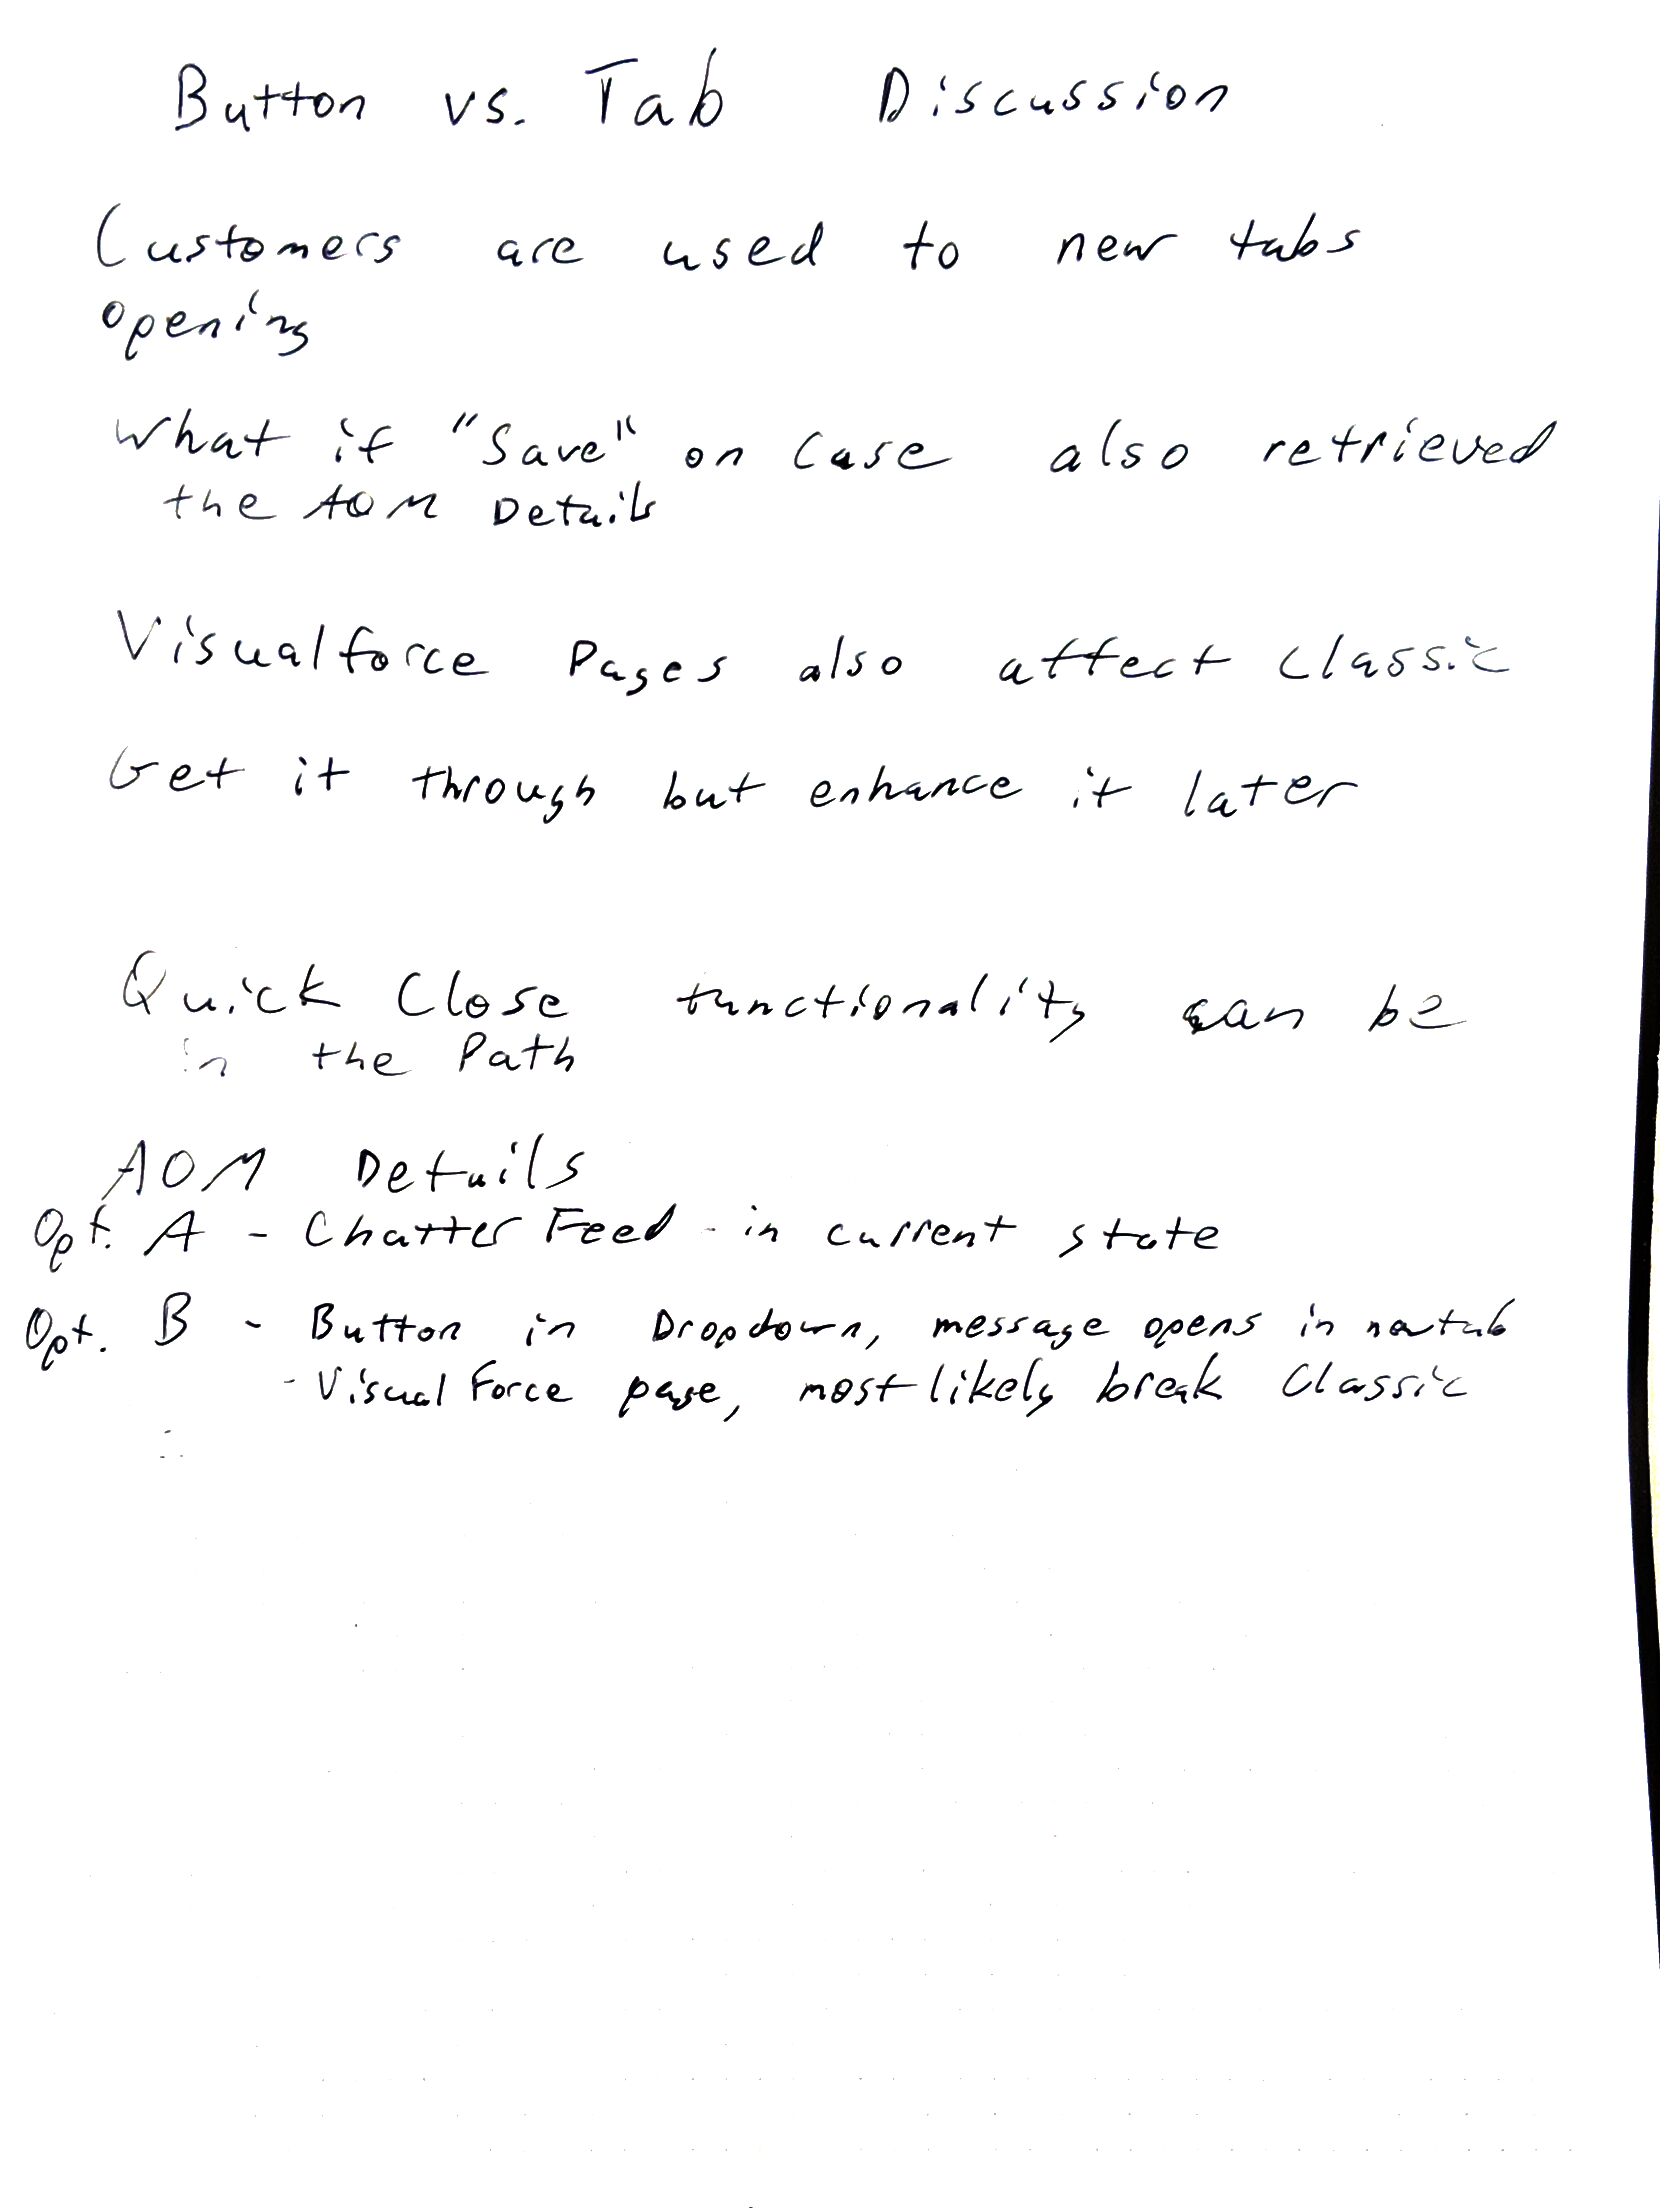 Button vs. Tab Discussion
Customers are used to new tabs
opening
What if "Save" on Case also retrieved
the AOM Details
Visualforce Pages also affect Classic
Get it through but enhance it later
Quick Close functionality can be
in the Path
AOM Details
Opt. A - Chatter Feed - in current state
Opt. B - Button in Dropdown, message opens in new tab
- Visual Force page, most likely break Classic